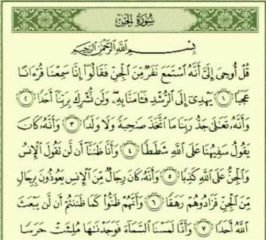 سُورَةُ الجِنِّ
بِسْمِ اللَّهِ الرَّحْمَٰنِ الرَّحِيمِ
قُلْ أُوحِيَ إِلَيَّ أَنَّهُ اسْتَمَعَ نَفَرٌ مِّنَ الْجِنِّ فَقَالُوا إِنَّا سَمِعْنَا قُرْءَانًا
عَجَبًا ١ يَهْدِي إِلَى الرُّشْدِ فَـَٔامَنَّا بِهِ وَلَن نُّشْرِكَ بِرَبِّنَا أَحَدًا ٢
وَأَنَّهُ تَعَٰلَىٰ جَدُّ رَبِّنَا مَا اتَّخَذَ صَٰحِبَةً وَلَا وَلَدًا ٣ وَأَنَّهُ كَانَ
يَقُولُ سَفِيهُنَا عَلَى اللَّهِ شَطَطًا ٤ وَأَنَّا ظَنَنَّا أَن لَّن تَقُولَ الْإِنسُ
وَالْجِنُّ عَلَى اللَّهِ كَذِبًا ٥ وَأَنَّهُ كَانَ رِجَالٌ مِّنَ الْإِنسِ يَعُوذُونَ بِرِجَالٍ
مِّنَ الْجِنِّ فَزَادُوهُمْ رَهَقًا ٦ وَأَنَّهُمْ ظَنُّوا كَمَا ظَنَنتُمْ أَن لَّن يَبْعَثَ
اللَّهُ أَحَدًا ٧ وَأَنَّا لَمَسْنَا السَّمَاءَ فَوَجَدْنَٰهَا مُلِئَتْ حَرَسًا